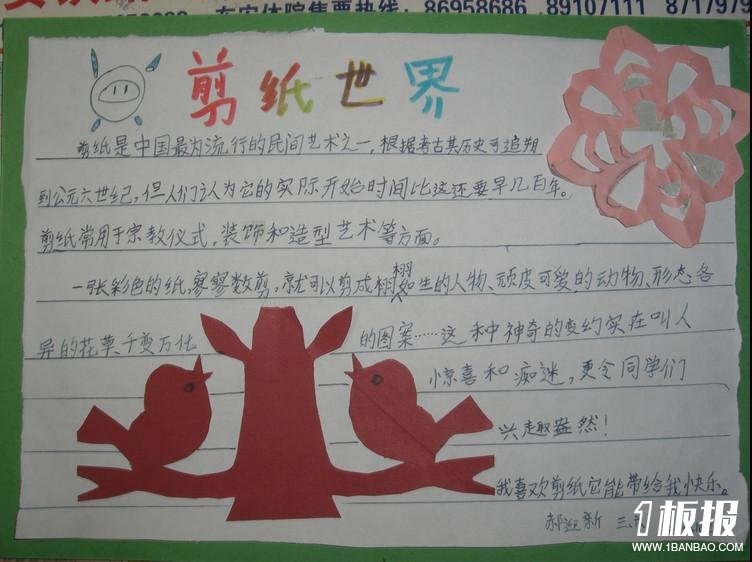 东安体院售票热线: 86958686 89107111 8717979
剪纸世界
剪纸是中国最为流行的民间艺术之一,根据考古其历史可追朔
到公元六世纪,但人们认为它的实际开始时间比这还要早几百年。
剪纸常用于宗教仪式,装饰和造型艺术等方面。
一张彩色的纸,寥寥数剪,就可以剪成栩栩如生的人物、顽皮可爱的动物、形态各
异的花草、千变万化的图案……这种神奇的变幻实在叫人
惊喜和痴迷,更令同学们
兴趣盎然!
我喜欢剪纸它能带给我快乐。
郝迎新 三
1板报
WWW.1BANBAO.COM